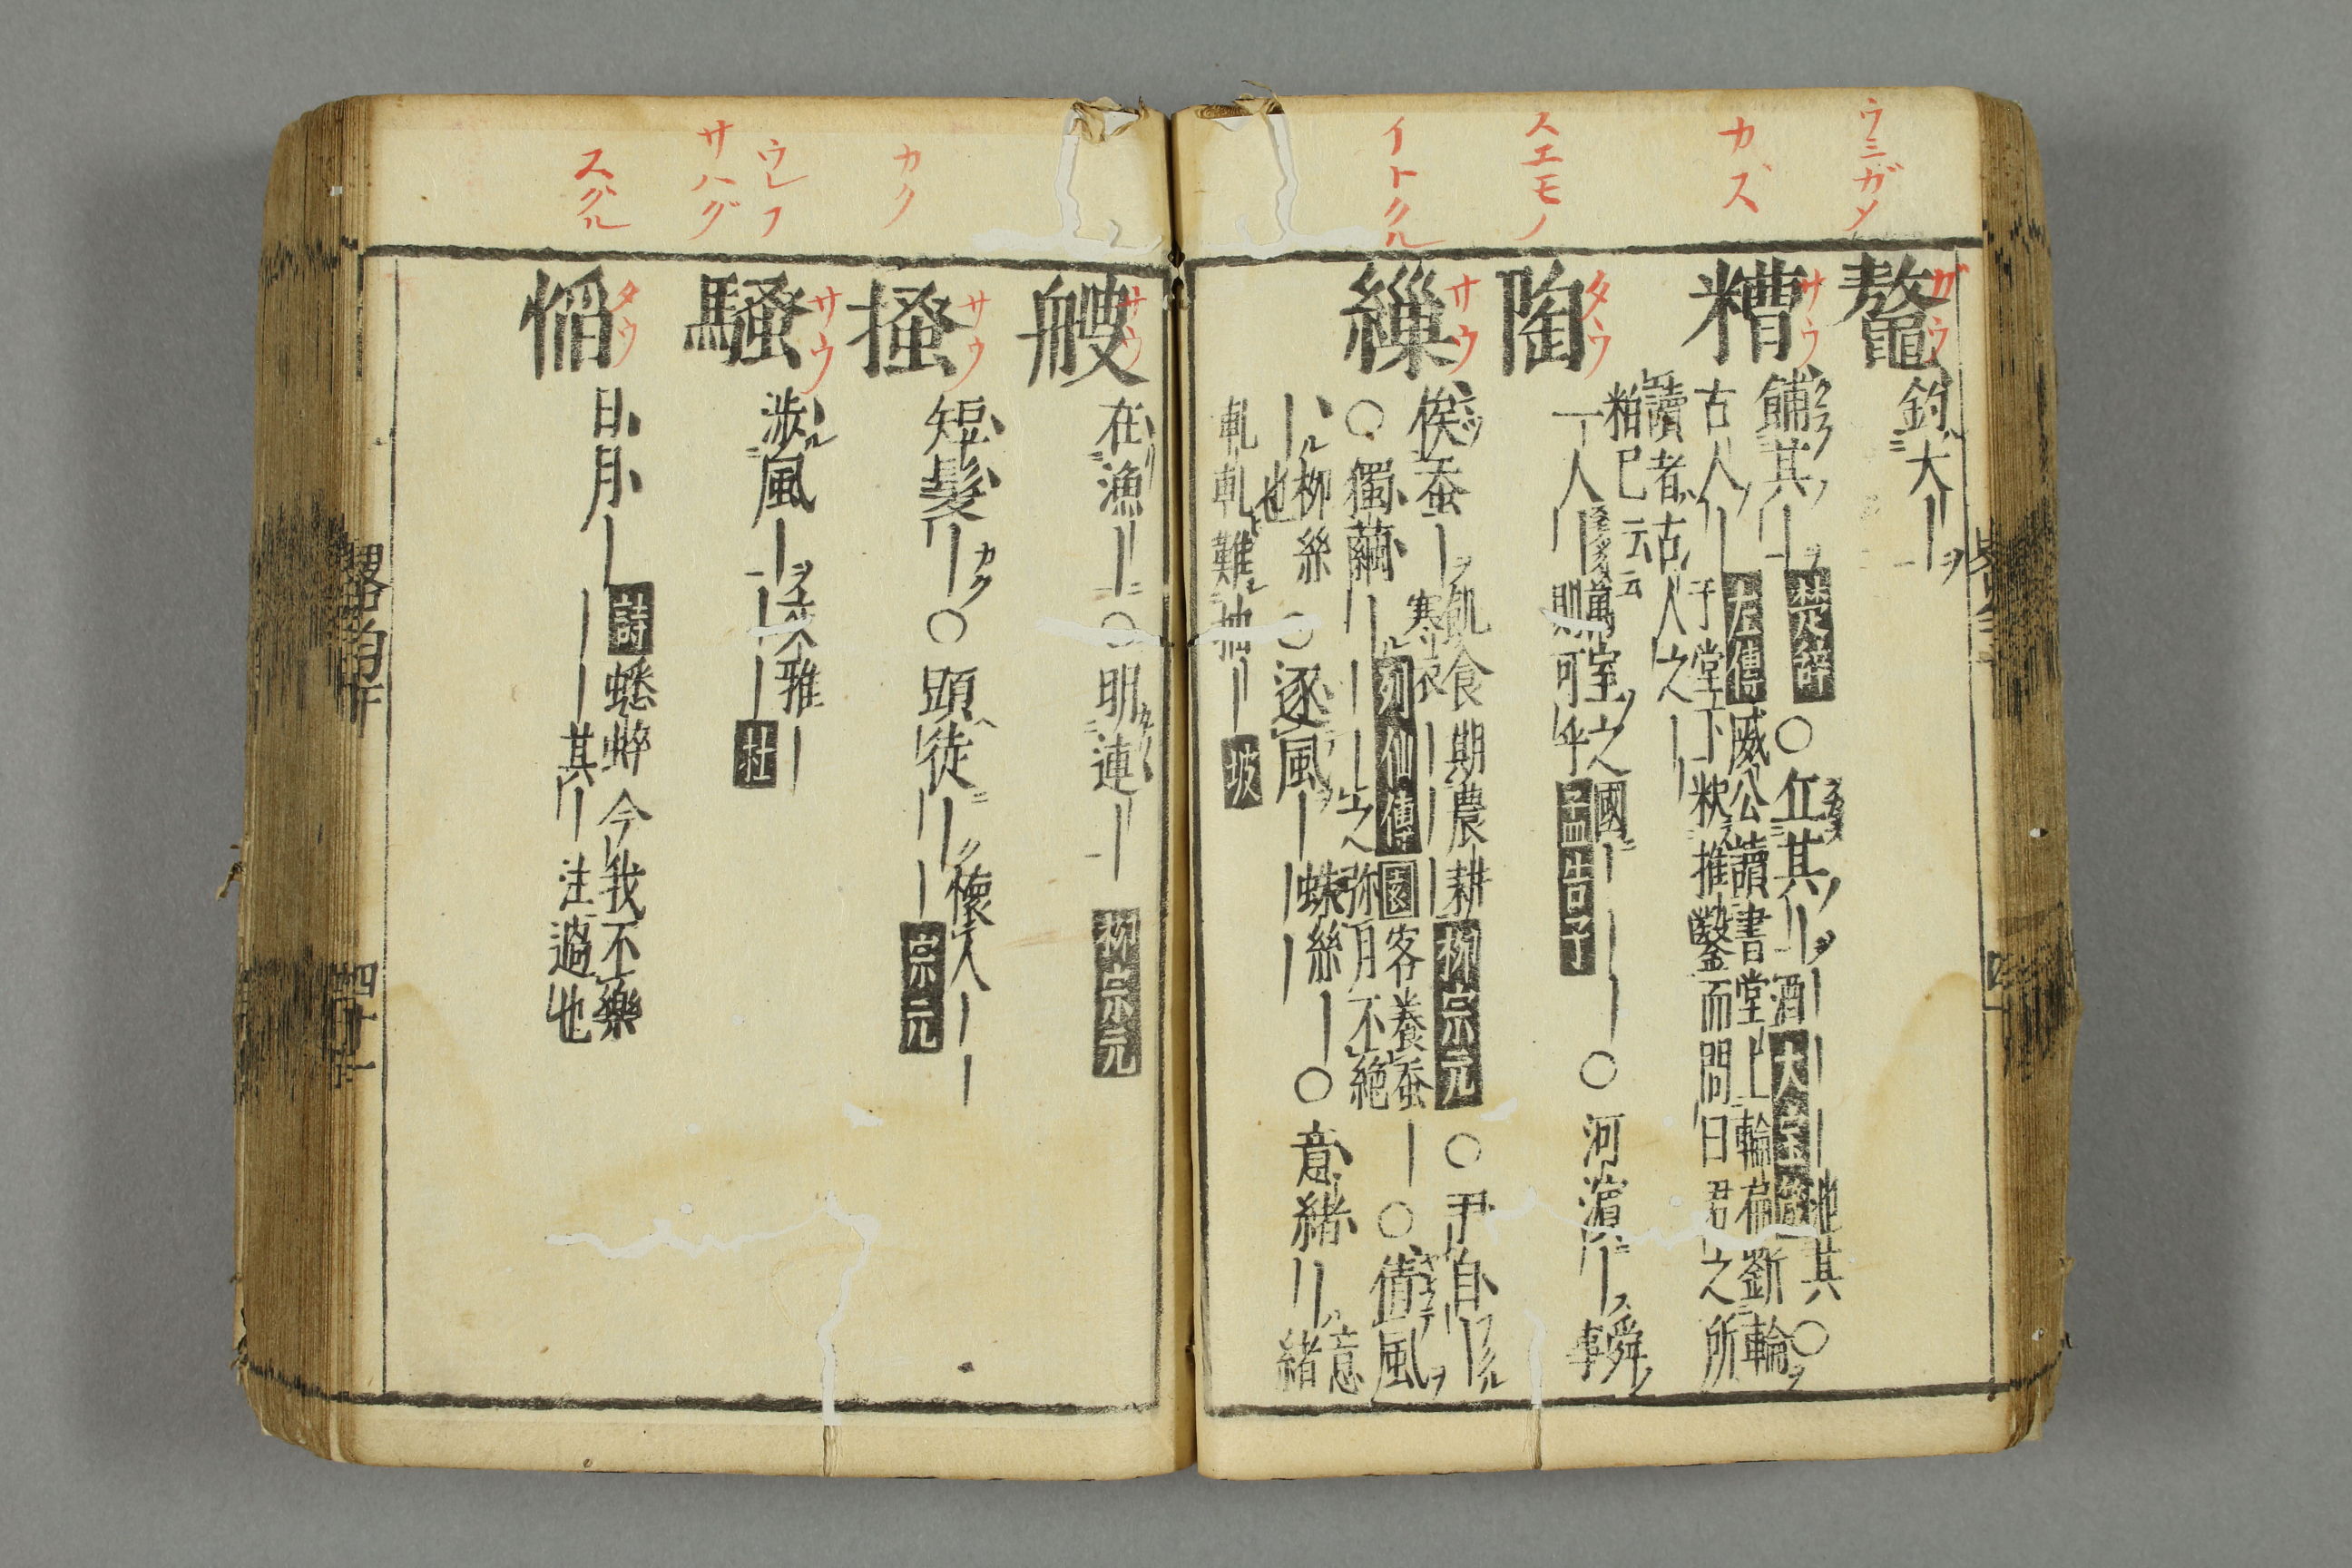 ウミガメ
鼇
ガウ
釣大｜ヲ
カズ
糟
サウ
餔其｜ヲ
楚辞
○
其｜ヲ
｜酒
｜｜地其○
古人｜
左傳
威公讀書堂上輪扁斲輪
于堂下釈推鑿而問曰君之所
讀者古人之｜
粕已云云
スエモノ
陶
タウ
一人｜
萬室之國｜｜｜
則可乎
孟告子
○
河濱｜
舜事
イトクル
繅
サウ
俟蚕｜ヲ
飢食｜期農｜耕
寒衣
柳宗元
○
尹自｜
○獨繭｜
列仙傳
園客養蚕｜
｜｜之弥月不絶
○
借風ヲ
｜柳絲
也
○逐風｜
蛛絲｜
○意緒｜
意緒
軋軋難抽｜
坡
艘
サウ
在漁｜
○明連｜
柳宗元
カク
搔
サウ
短髮｜カク
○顕徒｜
懐人｜｜
｜宗元
ウレフ
サハグ
騷
サウ
渉風｜ヲ
大雅｜
｜｜杜
スグル
慆
タウ
日月｜
詩蟋蟀今我不樂
｜｜其｜注過也
畧韵下
四十一